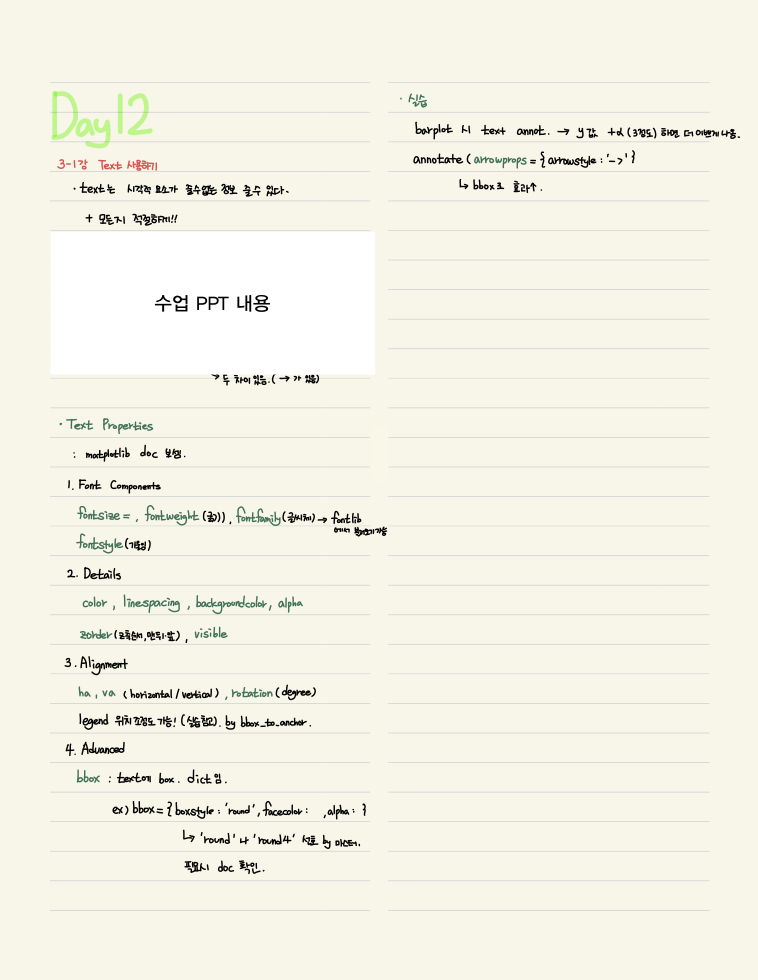 Day12
3-1강 Text 사용하기
· text는 시각적 요소가 줄수없는 정보 줄수 있다.
+ 모든지 적절하게!!
수업 PPT 내용
두 차이 있음. ( → 가 있음)
· Text Properties
: matplotlib doc 보셈.
1. Font Components
fontsize = , fontweight (굵기), fontfamily (글씨체) → fontlib
에서 볼러오기가능
fontstyle (기울임)
2. Details
color , linespacing , backgroundcolor, alpha
zorder ( , 맨뒤·앞) , visible
3. Alignment
ha , va ( horizontal / vertical ) , rotation ( degree)
legend 위치 조정도 가능! (실습참고). by bbox_to_anchor.
4. Advanced
bbox : text에 box. dict 임.
ex) bbox = { boxstyle : 'round' , facecolor : , alpha : }
↳ 'round' 나 'round4' 선호 by 마스터.
필요시 doc 확인.
· 실습
barplot 시 text annot. → y값 +α (3정도) 하면 더 이쁘게 나옴.
annotate ( arrowprops = { arrowstyle : '->' }
↳ bbox로 효과↑.